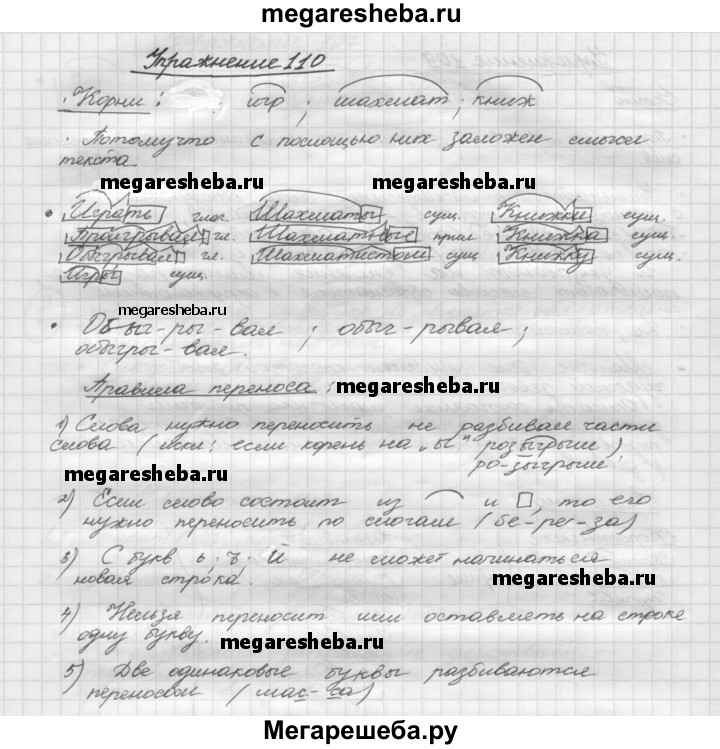 megaresheba.ru
Упражнение 110
· Корни: игр; шахмат; книж
· Потому что с помощью них заложен смысл
текста.
megaresheba.ru megaresheba.ru
· Играть глаг. Шахматы, сущ. Книжки сущ.
Проигрывал гл. Шахматные прил Книжка сущ.
Обыгрывал гл. Шахматистом сущ Книжку сущ.
Игры сущ.
megaresheba.ru
· Обыг-ры-вал; обыг-рывал;
обыгры-вал.
Правила переноса: megaresheba.ru
1) Слова нужно переносить не разбивая части
слова (искл: если корень на „ы" розыгрыш)
ро-зыгрыш.
megaresheba.ru
2) Если слово состоит из и , то его
нужно переносить по слогам (бе-ре-за)
3) С букв ь, ъ, й не может начинаться
новая строка.
megaresheba.ru
4) Нельзя переносит или оставлять на строке
одну букву.
megaresheba.ru
5) Две одинаковые буквы разбиваются
переносом (мас-са)
Мегарешеба.ру